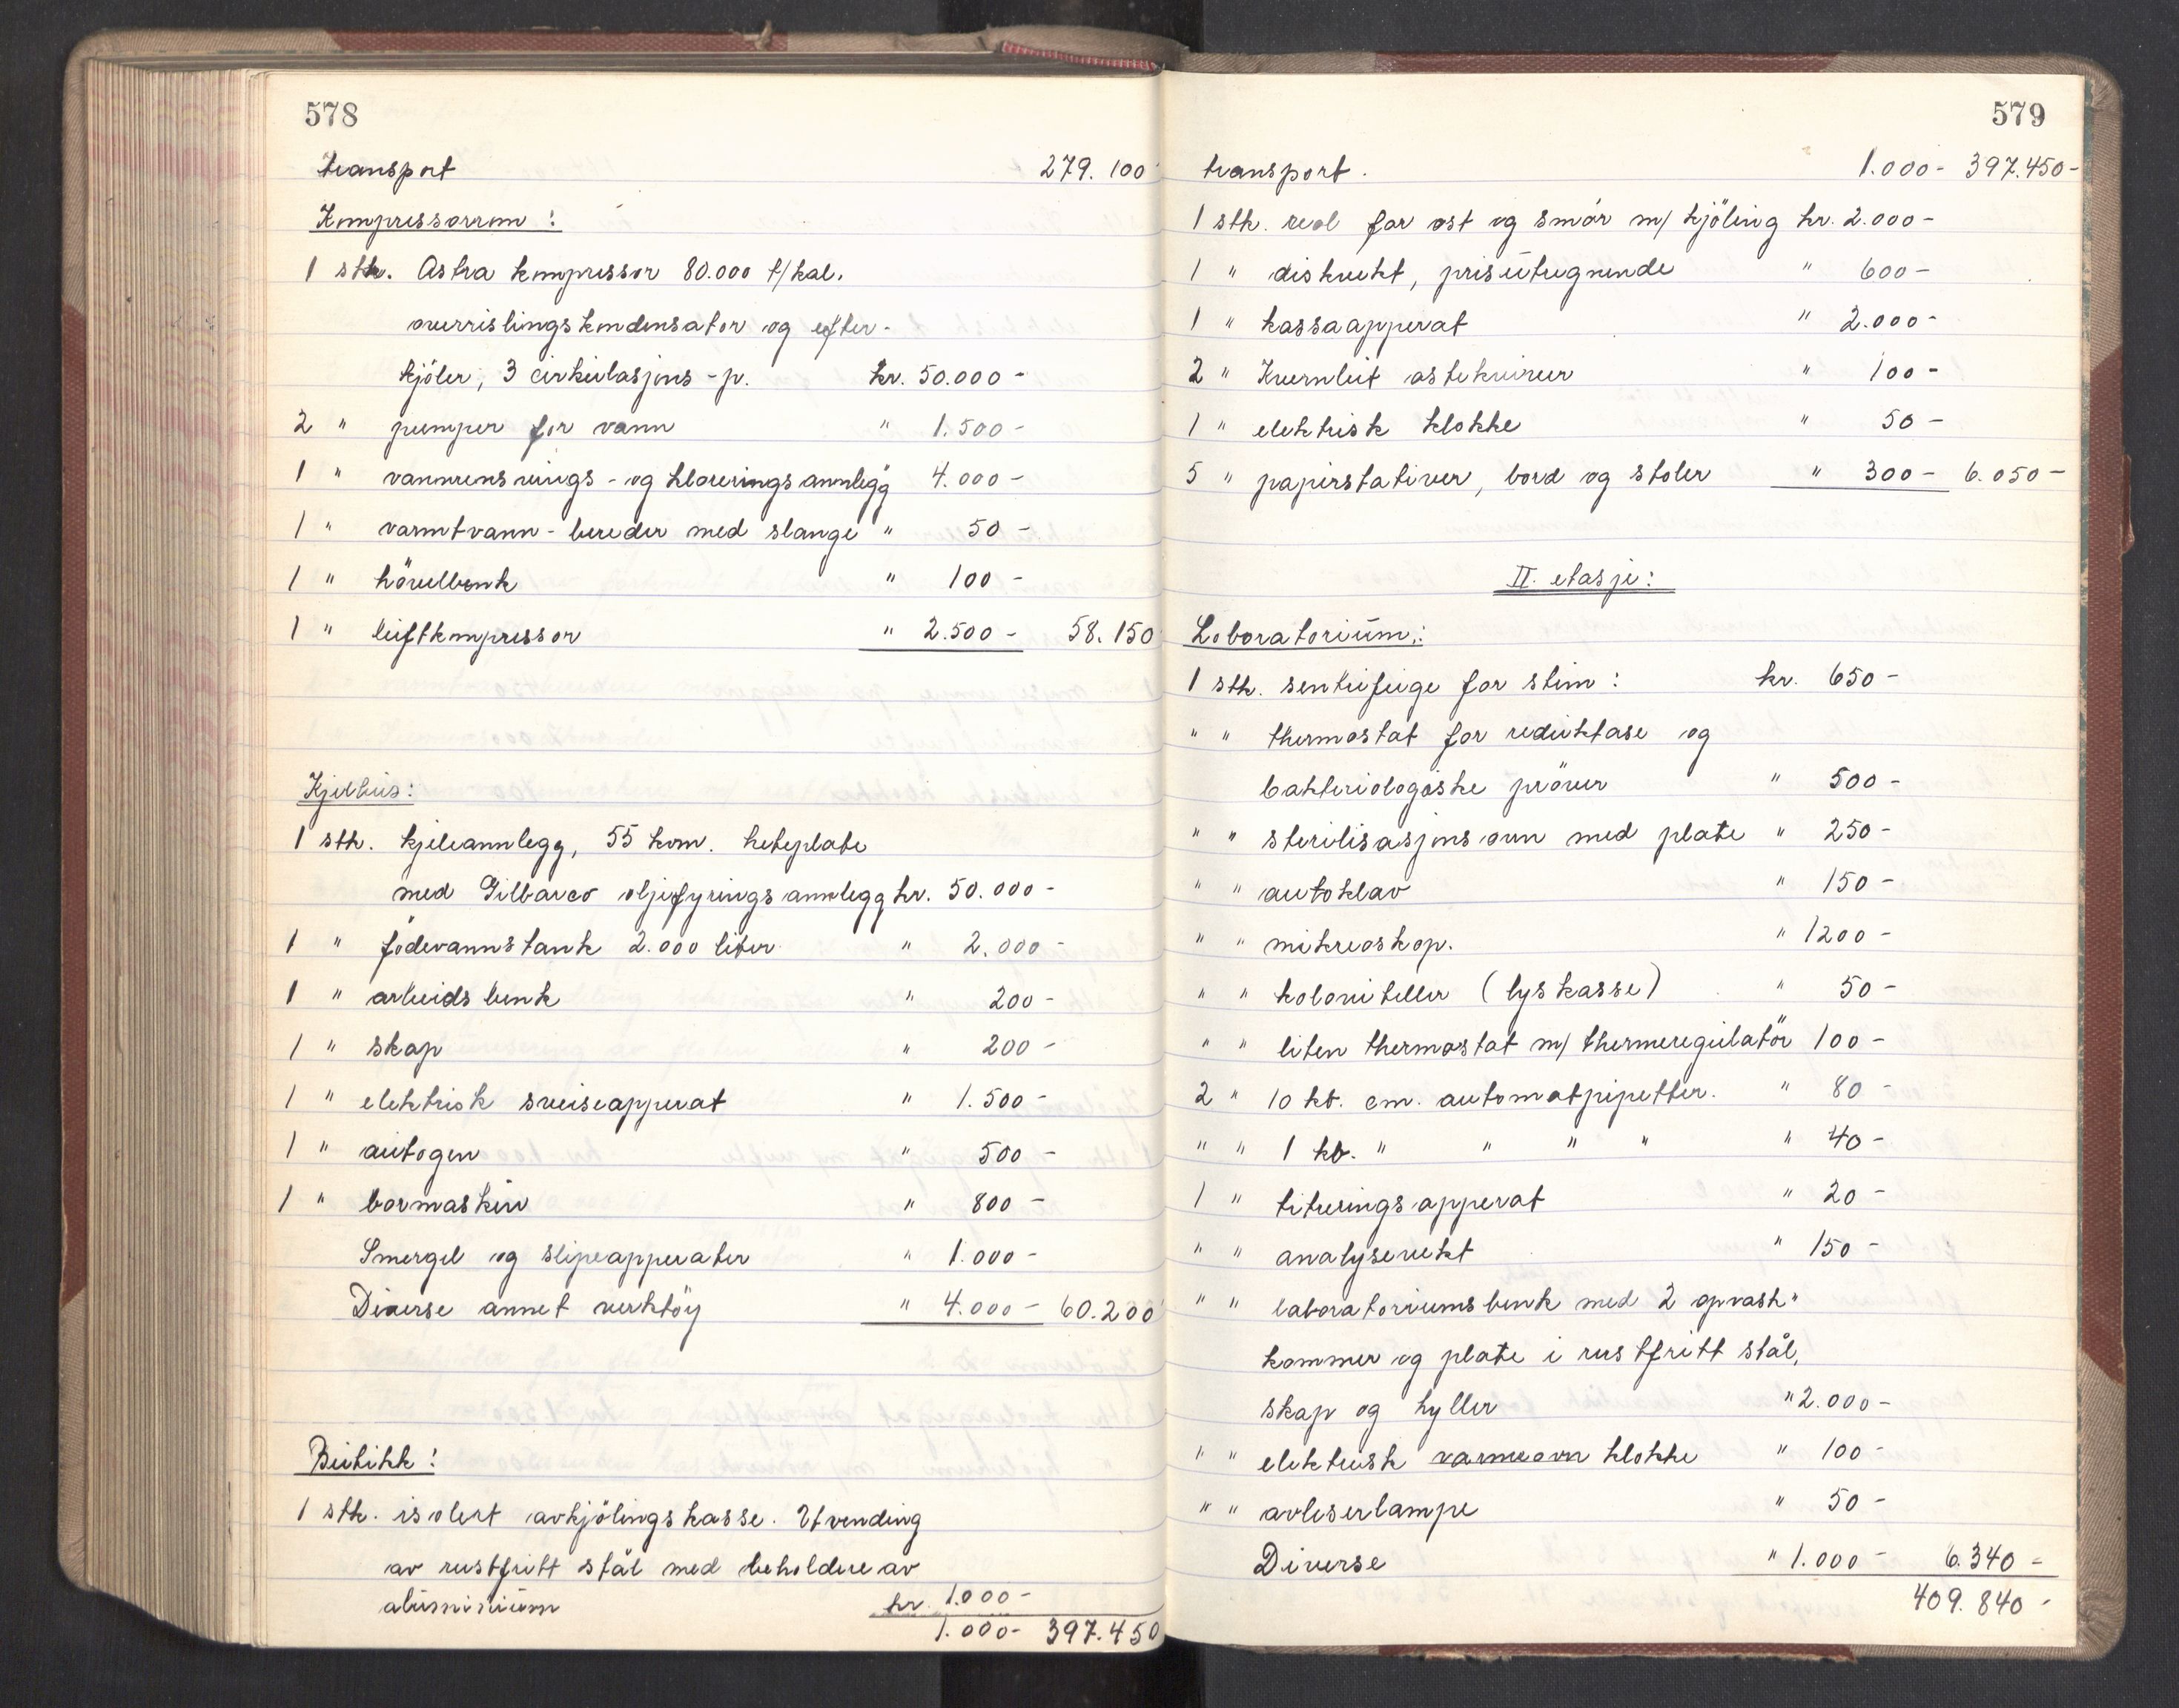 578
transport 279.100
Kompressorrom:
1 stk. Astra kompressor 80.000 t/kal.
overrislingskondensator og efter-
kjöler, 3 cirkulasjons-p. kr. 50.000-
2 " pumper for vann " 1.500-
1 " vannrensnings- og kloreringsannlegg 4.000-
1 " varmtvann-bereder med slange " 50-
1 " hövelbenk " 100-
1 " luftkompressor " 2.500- 58.150
Kjelhus:
1 stk. kjeleannlegg, 55 kvm. heteplate
med Gilbarco oljefyringsannlegg kr. 50.000-
1 " födevannstank 2.000 liter " 2.000-
1 " arbeidsbenk " 200-
1 " skap " 200-
1 " elektrisk sveiseapperat " 1.500-
1 " autogen " 500-
1 " bormaskin " 800-
Smergel og slipeapperater " 1.000-
Diverse annet verktöy " 4.000- 60.200
Butikk:
1 stk. isolert avkjölingskasse. Utvending
av rustfritt stål med beholdere av
aluminium kr. 1.000-
1.000- 397.450
579
transport. 1.000- 397.450-
1 stk. reol for ost og smör m/ kjöling kr. 2.000-
1 " diskvekt, prisutregnende " 600-
1 " kassaapperat " 2.000-
2 " Kvernlut ostekniver " 100-
1 " elektrisk klokke " 50-
5 " papirstativer, bord og stoler " 300- 6.050-
II. etasje:
Loboratorium:
1 stk. sentrifuge for slim: kr. 650-
" " thermostat for reduktase og
bakteriologiske pröver " 500-
" " sterilisasjonsovn med plate " 250-
" " autoklav " 150-
" " mikroskop. " 1200-
" " koloniteller (lyskasse) " 50-
" " liten thermostat m/ thermeregulatör 100-
2 " 10 kb. cm. automatpipetter. " 80-
" " 1 kb. " " " " " 40-
1 " titreringsapperat " 20-
" " analysevekt " 150-
" " laboratoriumsbenk med 2 opvask"
kommer og plate i rustfritt stål,
skap og hyller " 2.000-
" " elektrisk varmeovn klokke " 100-
" " avleserlampe " 50-
Diverse " 1.000- 6.340-
409.840-